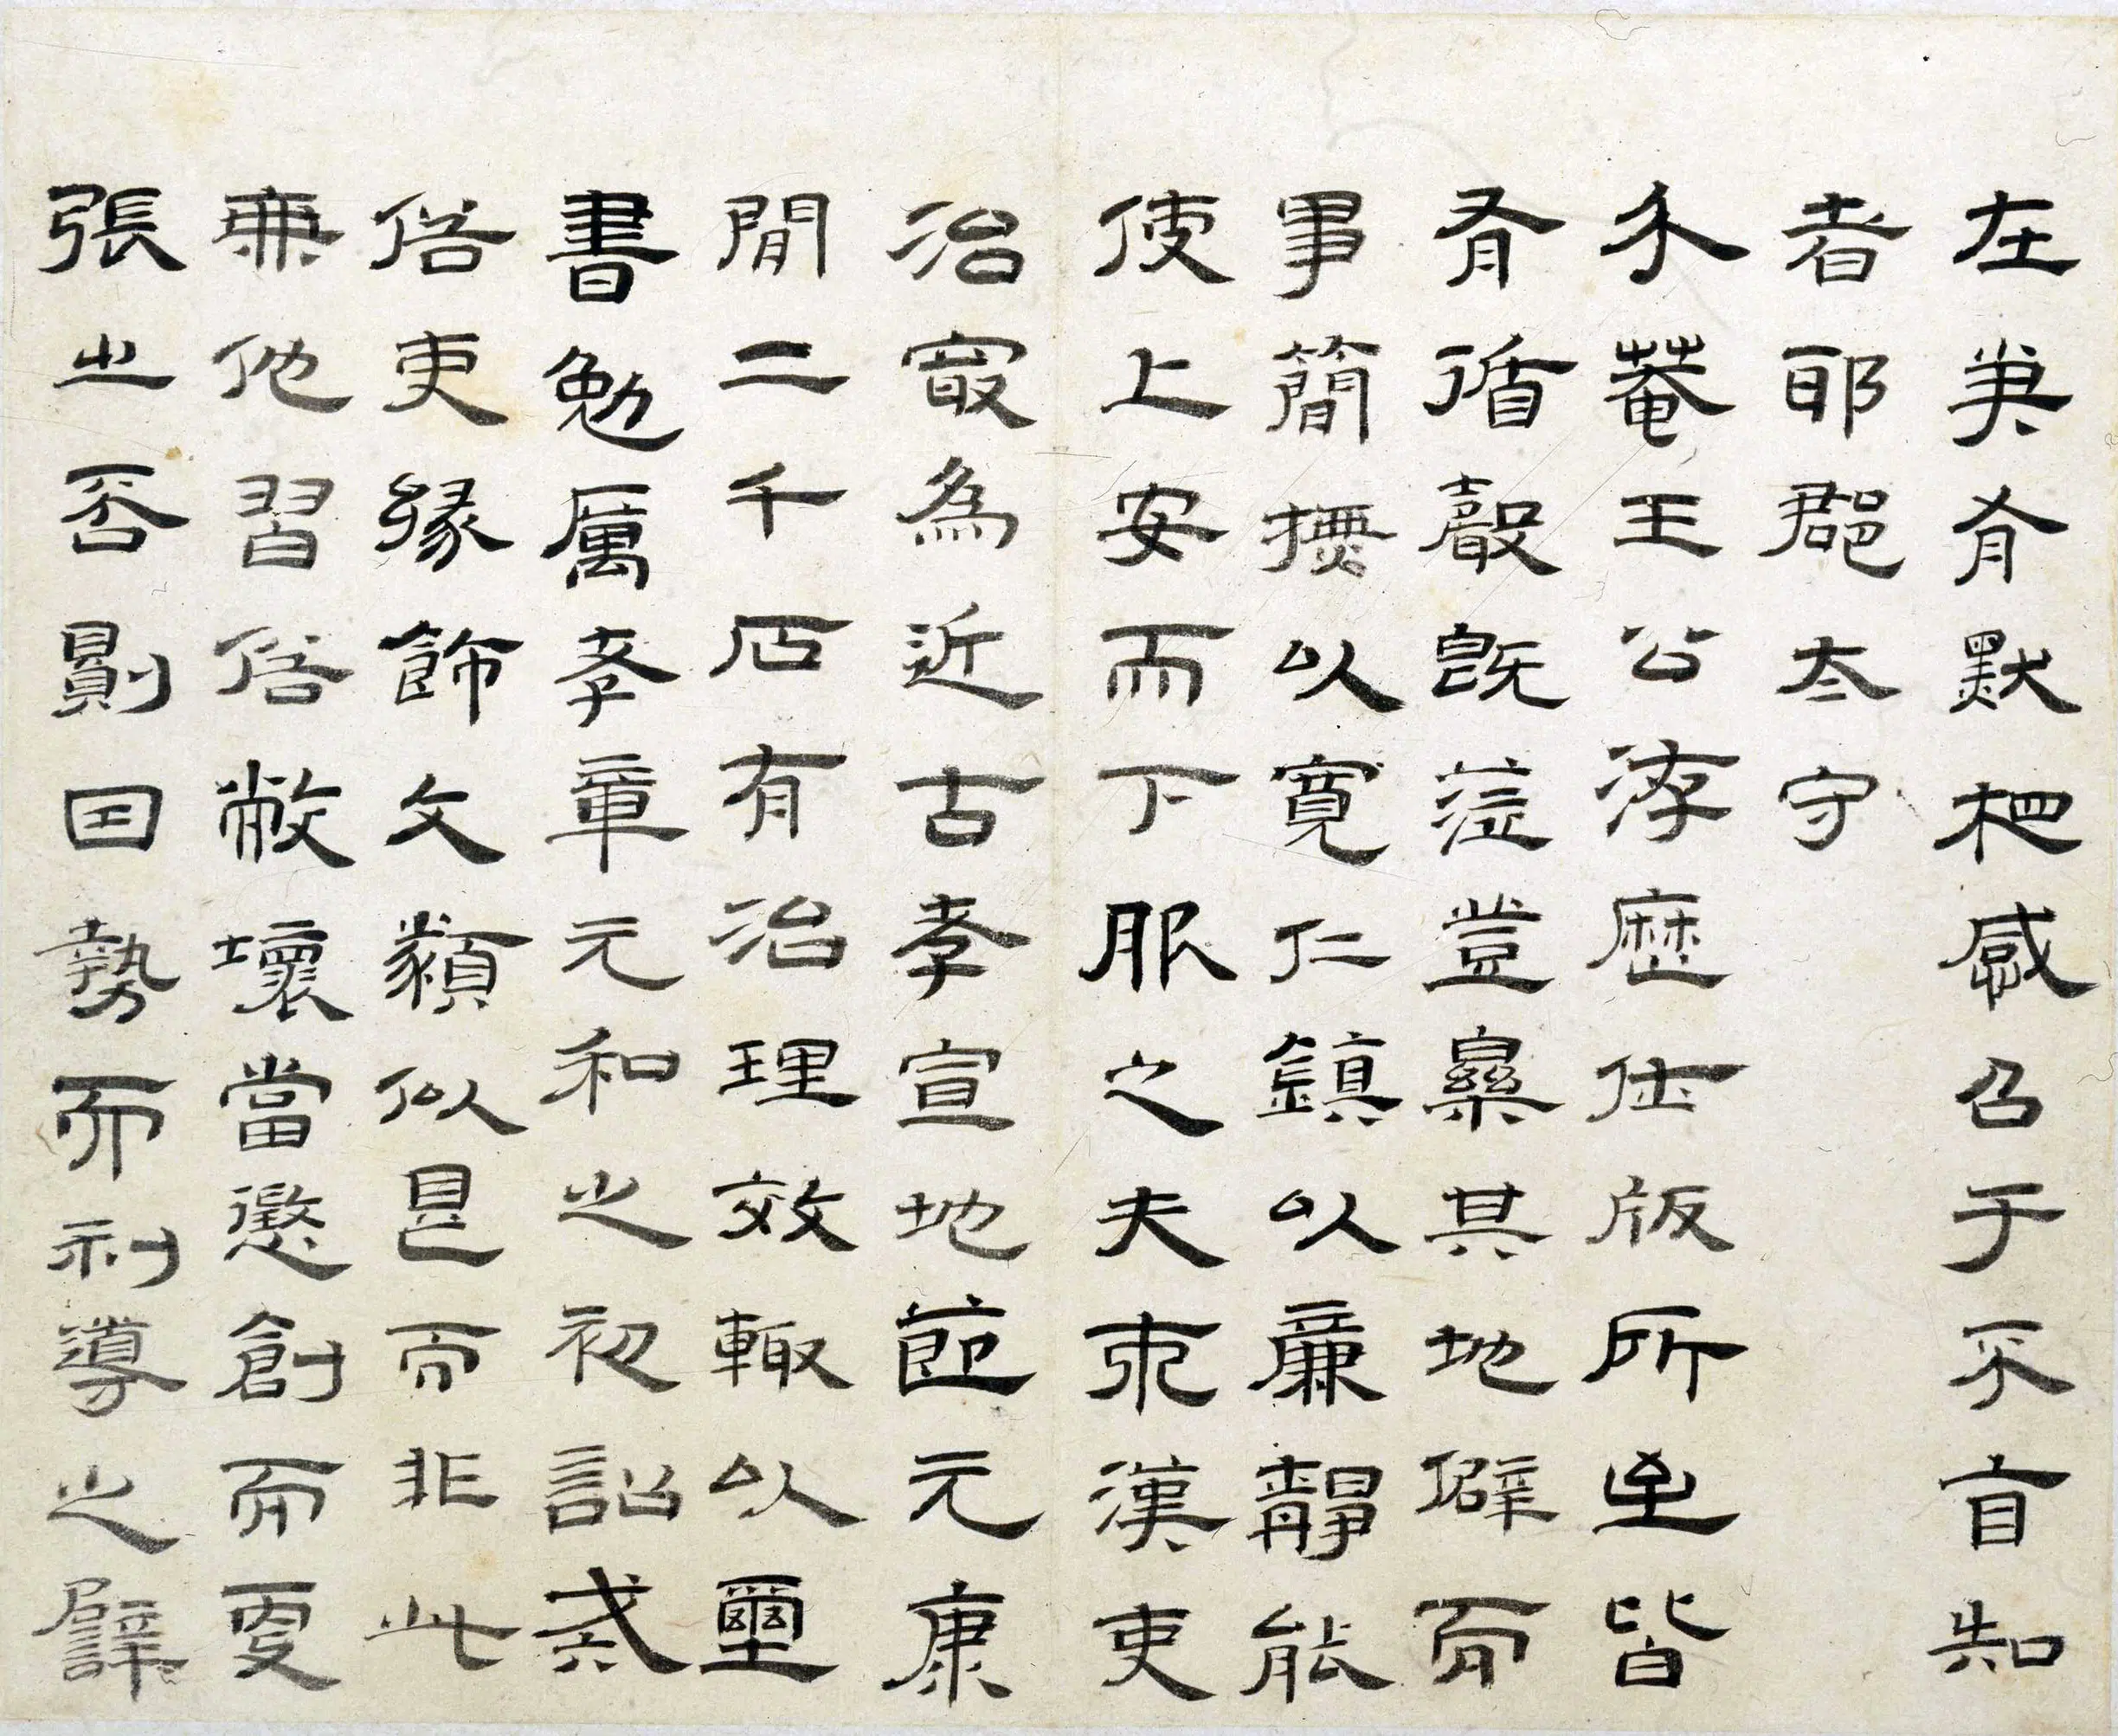 在有默相感召于不自知
者耶郡太守
禾菴王公洊歷仕版所至皆
有循聲既蒞豈樂其地僻而
事簡撫以寬仁鎮以廉靜能
使上安而下服之夫兩漢吏
治最為近古孝宣地節元康
閒二千石有治理效輙以璽
書勉厲孝章元和之初詔戒
俗吏緣飾文貌似是而非此
兼他習俗敝壞當懲創而更
張之否則因勢而利導之譬